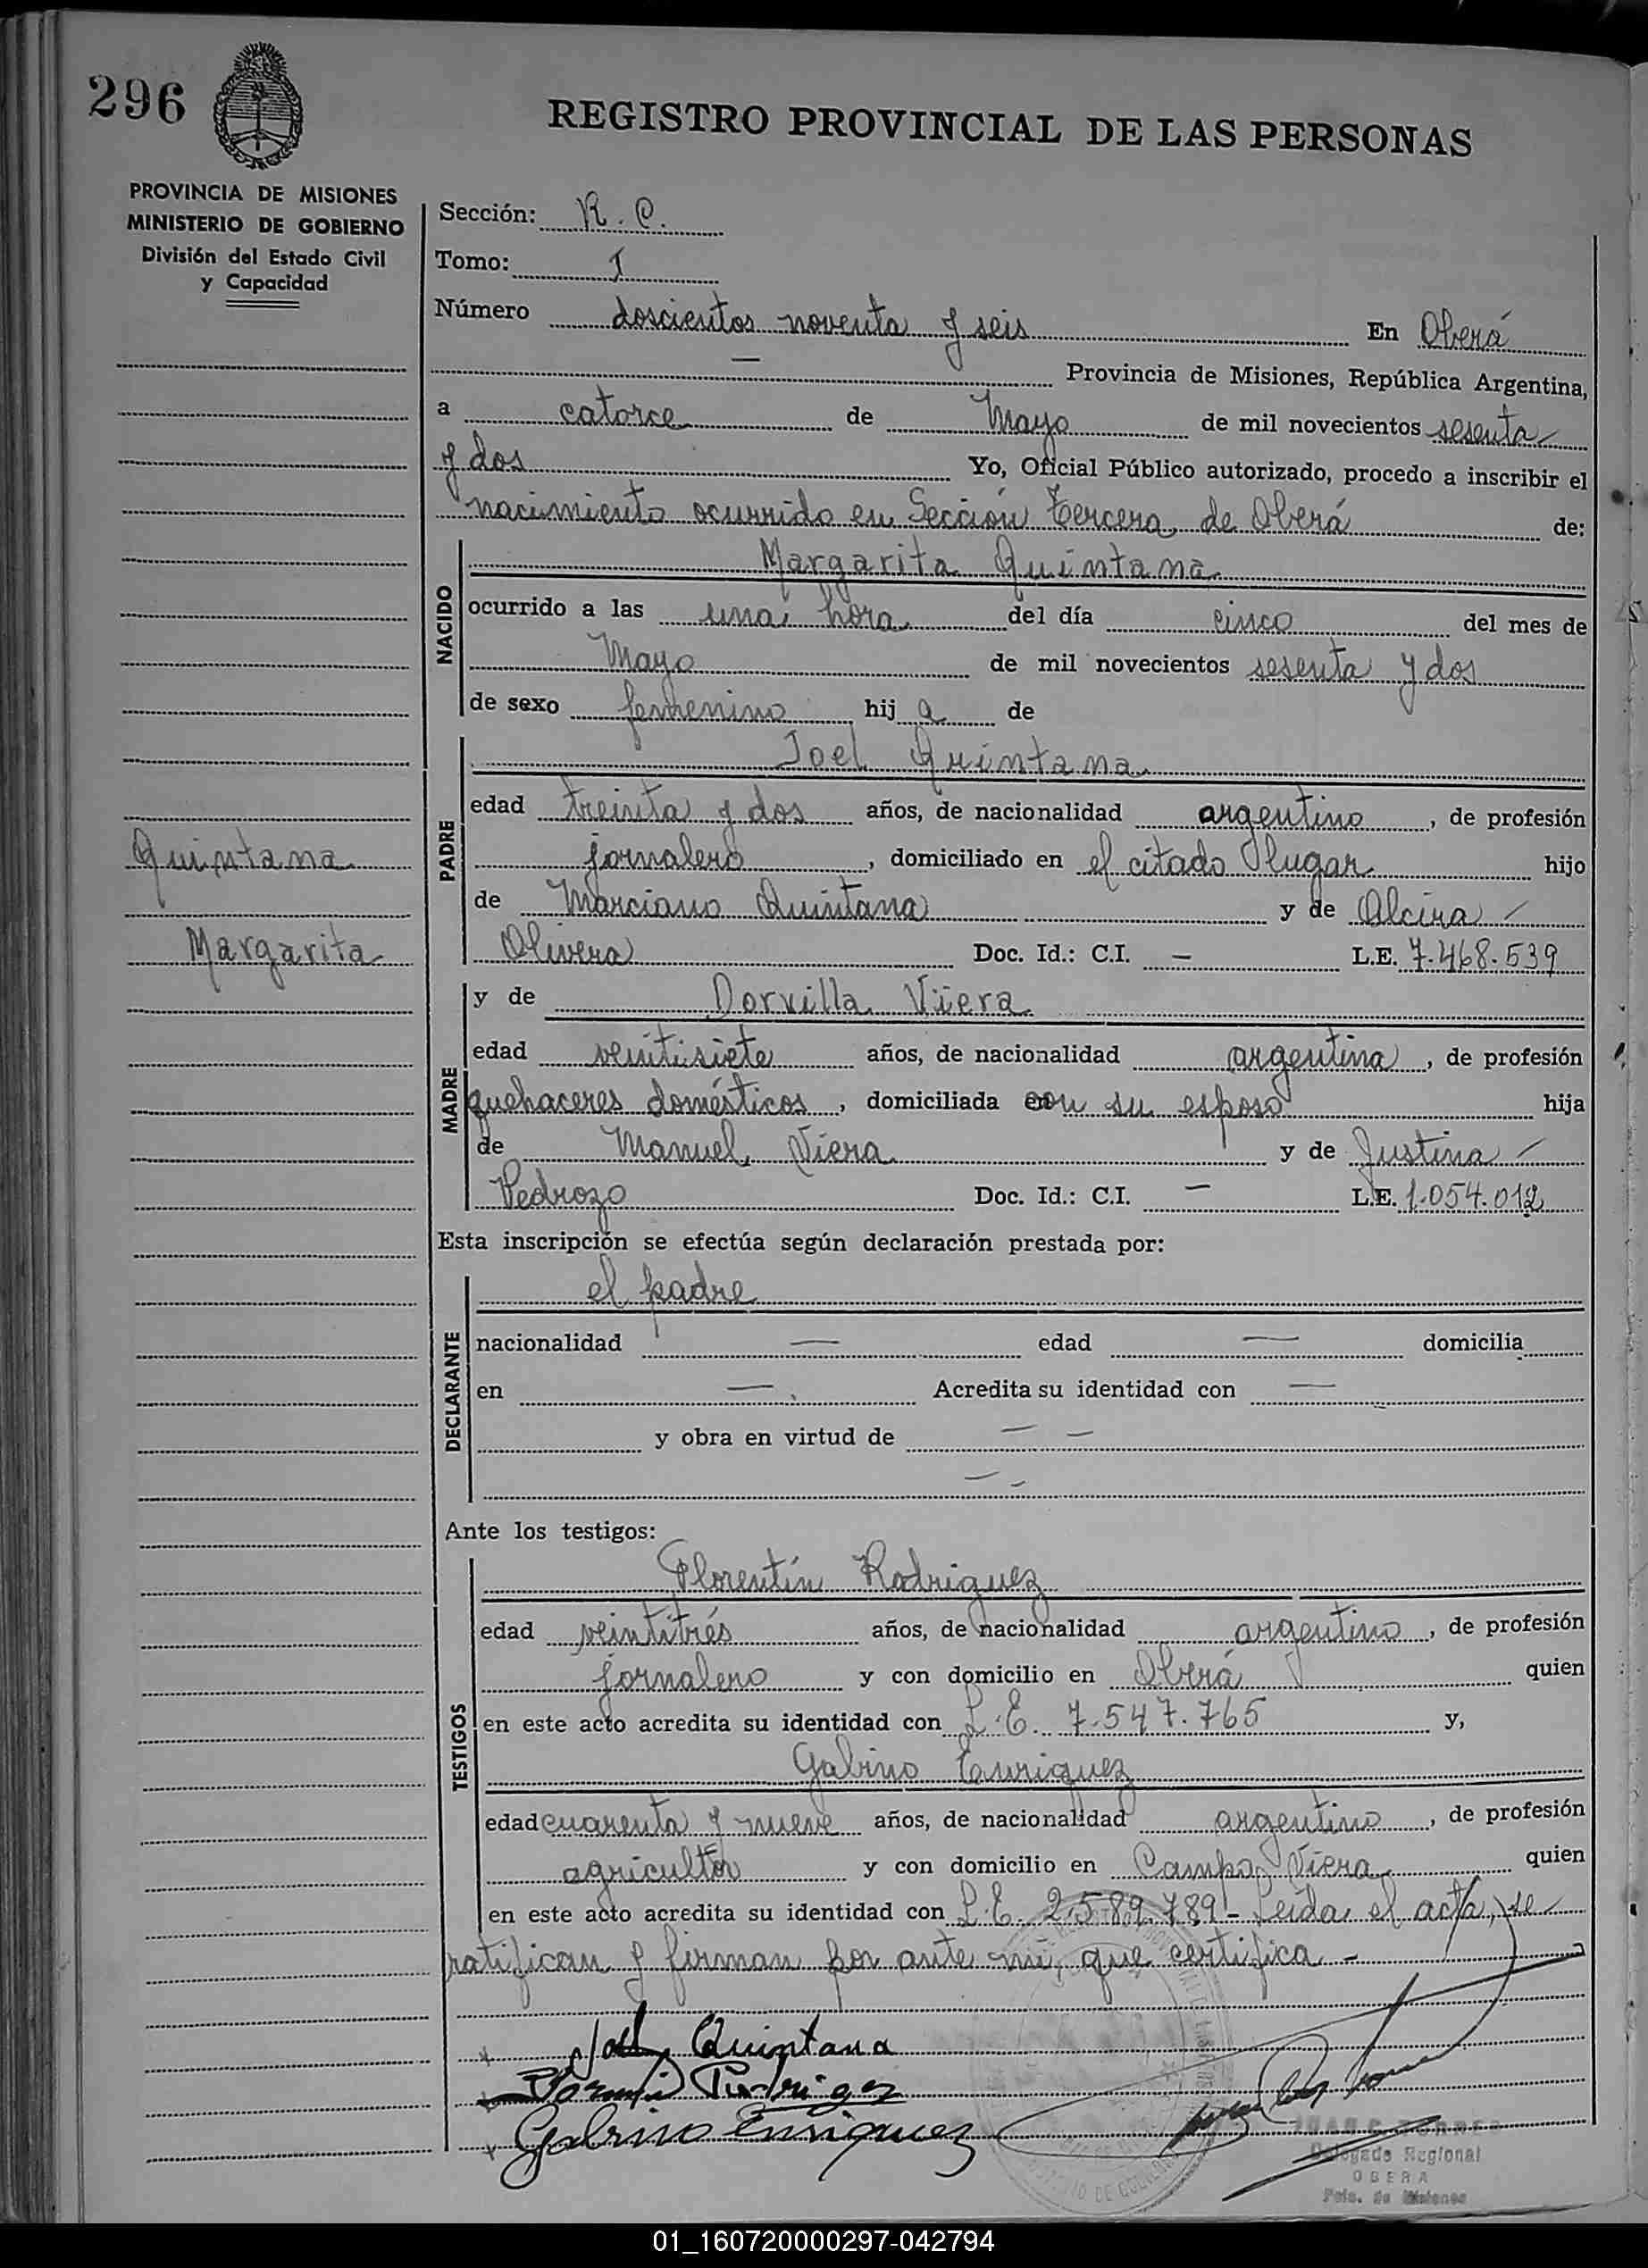 296
REGISTRO PROVINCIAL DE LAS PERSONAS
PROVINCIA DE MISIONES
MINISTERIO DE GOBIERNO
División del Estado Civil
y Capacidad
Sección: R. C.
Tomo: I
Número doscientos noventa y seis En Oberá
— Provincia de Misiones, República Argentina,
a catorce de Mayo de mil novecientos sesenta
y dos Yo, Oficial Público autorizado, procedo a inscribir el
nacimiento ocurrido en Sección Tercera, de Oberá de:
NACIDO
Margarita Quintana
ocurrido a las una hora del día cinco del mes de
Mayo de mil novecientos sesenta y dos
de sexo femenino hij a de
PADRE
Joel Quintana
edad treinta y dos años, de nacionalidad argentino, de profesión
jornalero, domiciliado en el citado lugar hijo
de Marciano Quintana y de Alcira
Olivera Doc. Id.: C.I. — L.E. 7.468.539
Quintana
Margarita
MADRE
y de Dorvilla Viera
edad veintisiete años, de nacionalidad argentina, de profesión
quehaceres domésticos, domiciliada con su esposo hija
de Manuel Viera y de Justina
Pedrozo Doc. Id.: C.I. — L.E. 1.054.012
Esta inscripción se efectúa según declaración prestada por:
DECLARANTE
el padre
nacionalidad — edad — domicilia
en — Acredita su identidad con —
y obra en virtud de — —
Ante los testigos:
TESTIGOS
Florentín Rodriguez
edad veintitrés años, de nacionalidad argentino, de profesión
jornalero y con domicilio en Oberá quien
en este acto acredita su identidad con L.E. 7.547.765 y,
Gabino Enriquez
edad cuarenta y nueve años, de nacionalidad argentino, de profesión
agricultor y con domicilio en Campo Viera quien
en este acto acredita su identidad con L.E. 2.589.789- Leída el acta, se
ratifican y firman por ante mí, que certifica -
Joel Quintana
Rodriguez
Gabino Enriquez
JUAN C. TORRES
Delegado Regional
OBERA
Pcia. de Misiones
01_160720000297-042794